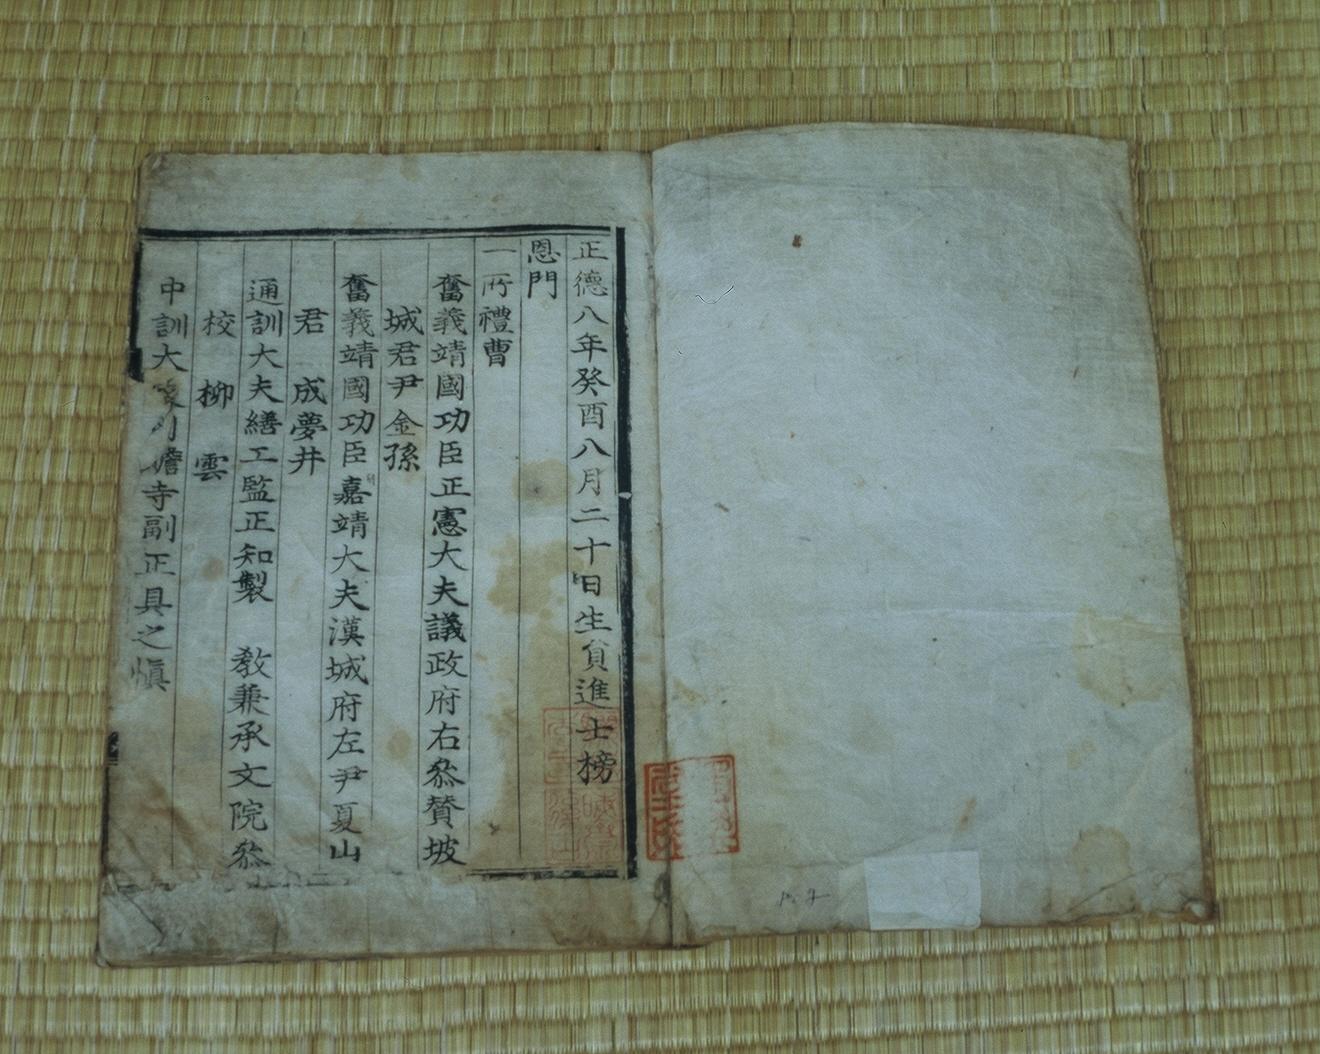 正德八年癸酉八月二十日生貟進士榜
恩門
一所禮曹
奮義靖國功臣正憲大夫議政府右叅賛坡
城君尹金孫
奮義靖國功臣嘉靖大夫漢城府左尹夏山
君 成夢井
通訓大夫繕工監正知製 敎兼承文院叅
校 柳 雲
中訓大寺副正具之愼